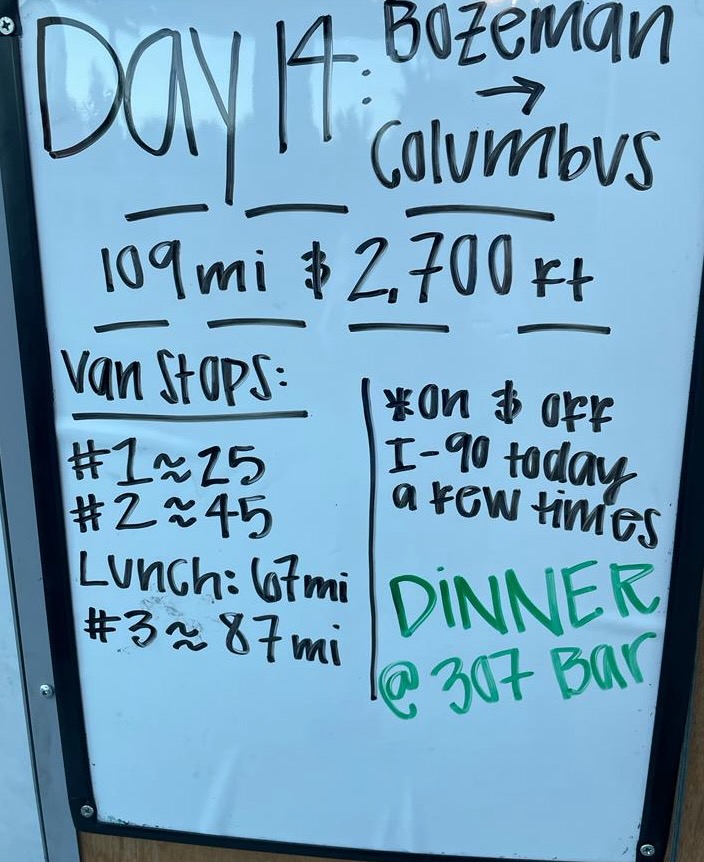 Day 14: Bozeman
→
Columbus
109 mi & 2,700 ft
Van Stops:
#1 ≈ 25
#2 ≈ 45
Lunch: 67mi
#3 ≈ 87 mi
*on & off
I-90 today
a few times
DINNER
@ 307 Bar